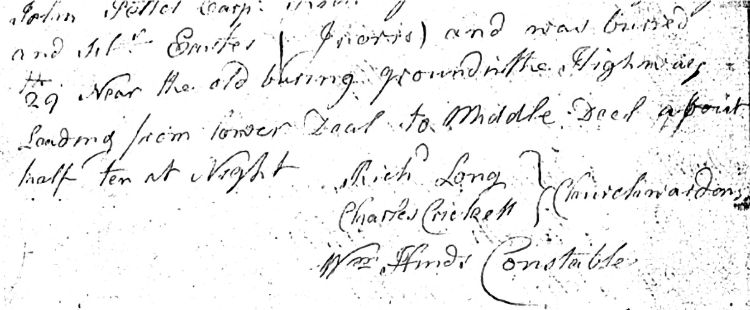 John
and Silr. Eastes (Jurors) and was buried
29 Near the old buring ground in the Highway
Leading from lower Deal to Middle Deal about
half ten at Night Richd Long
Charles Crickett } Churchwardens
Wm. Hinds Constable